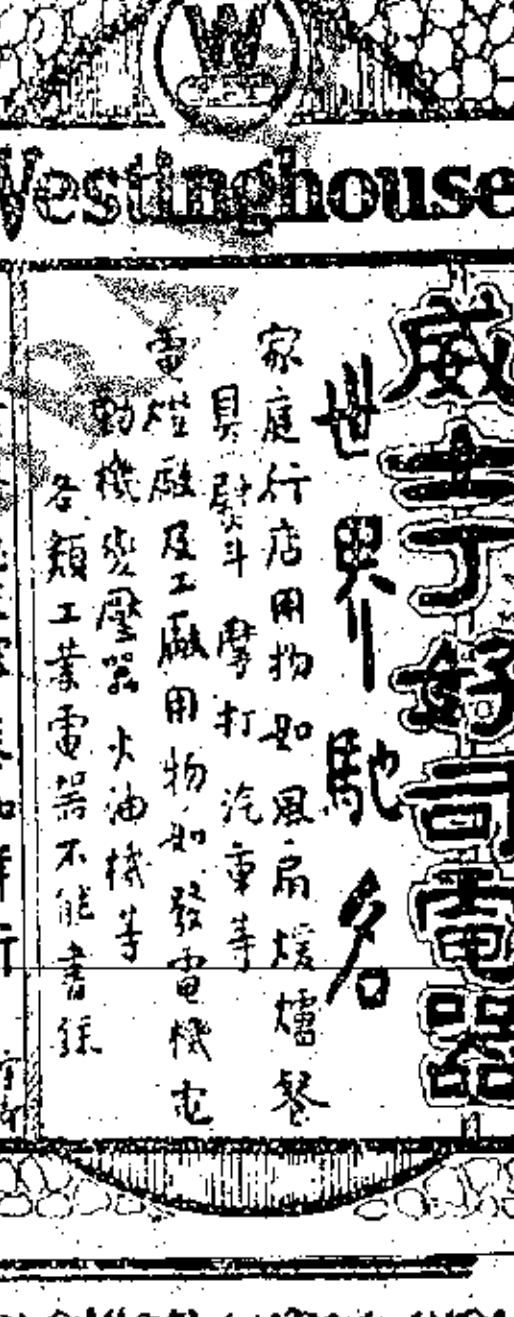 Westinghouse
威士丁好司電器
世界馳名
家庭行店用物如風扇煖爐餐
具熨斗摩打汽車等
電燈廠及工廠用物如發電機電
動機變壓器火油機等
各類工業電器不能書錄